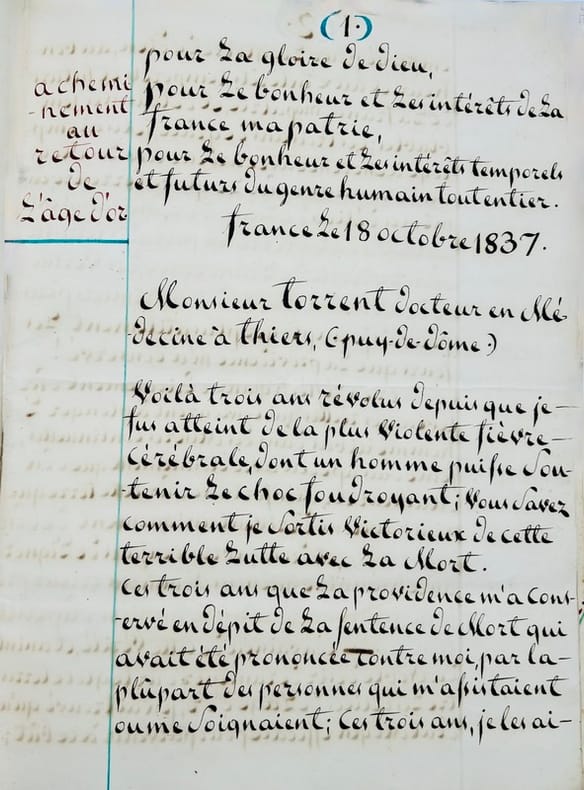 (1.)
achemi
-nement
au
retour
de
L'âge d'or
pour La gloire de dieu,
pour Le bonheur et Les intérêts de La
france ma patrie,
pour Le bonheur et Les intérêts temporels
et futurs du genre humain tout entier.
france Le 18 octobre 1837.
Monsieur torrent docteur en Mé
-decine à thiers, (puy-de-dôme.)
Voilà trois ans révolus depuis que je-
fus atteint de la plus Violente fièvre-
cérébrale, dont un homme puisse Sou-
-tenir Le choc foudroyant; Vous Savez
comment je Sortis Victorieux de cette
terrible Lutte avec La Mort.
Ces trois ans que La providence m'a Cons-
-ervé en dépit de La Sentence de Mort qui
avait été prononcée contre moi, par la-
plûpart des personnes qui m'assistaient
ou me Soignaient; Ces trois ans, je les ai-